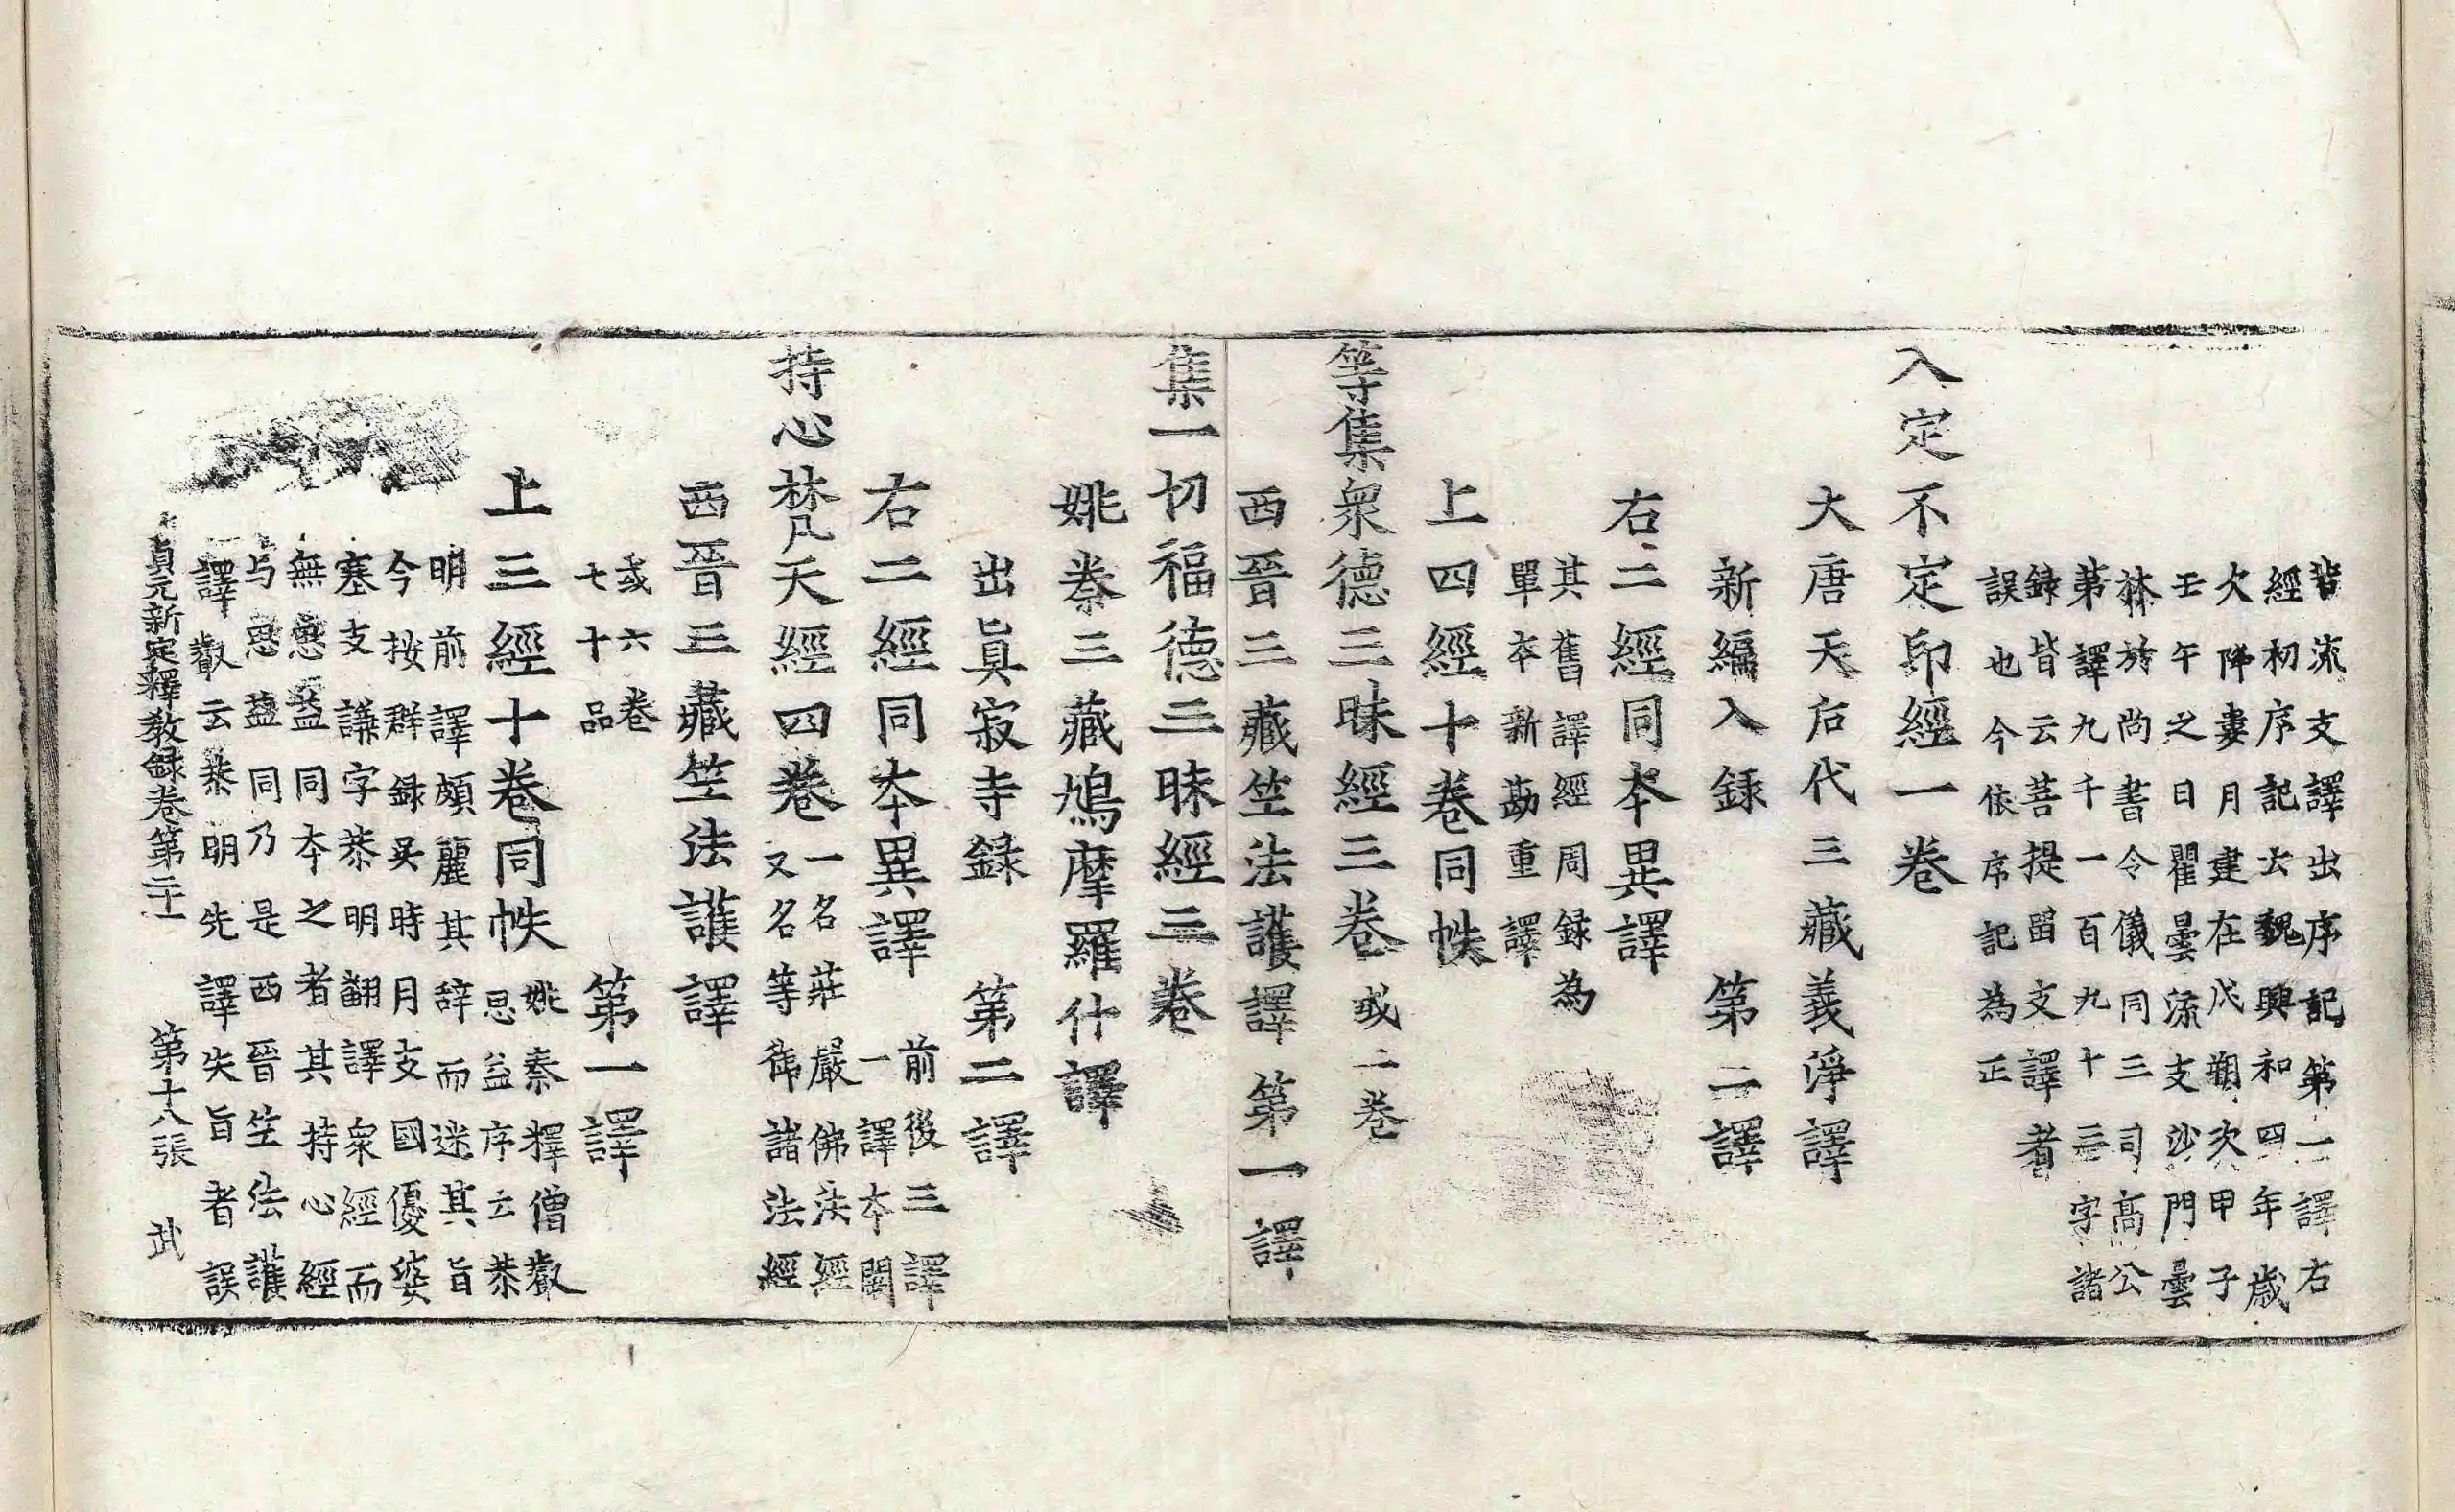 皆流支譯出序記第一譯右
經初序記云魏興和四年歲
次降婁月建在戊朔次甲子
壬午之日瞿曇流支沙門曇
林於尚書令儀同三司髙公
第譯九千一百九十三字諸
録皆云菩提留支譯者
誤也今依序記為正
入定不定印經一卷
大唐天后代三藏義淨譯
新編入録 第二譯
右二經同夲異譯
其舊譯經周録為
單夲新勘重譯
上四經十卷同帙
等集衆德三昧經三卷 或二卷
西晉三藏竺法護譯 第一譯
集一切福德三昧經三卷
姚秦三藏鳩摩羅什譯
出眞寂寺録 第二譯
右二經同夲異譯 前後三譯
一譯夲闕
持心梵天經四卷 一名莊嚴佛法經
又名等御諸法經
西晉三藏竺法護譯
或六卷
七十品 第一譯
上三經十卷同帙 姚秦釋僧叡
思益序云恭
明前譯頗麗其辞而迷其旨
今按群録吴時月支國優婆
塞支謙字恭明翻譯衆經而
無思益同夲之者其持心經
与思益同乃是西晉竺法護
譯叡云恭明先譯失旨者誤
貞元新定釋教録卷第二十一 第十八張 武